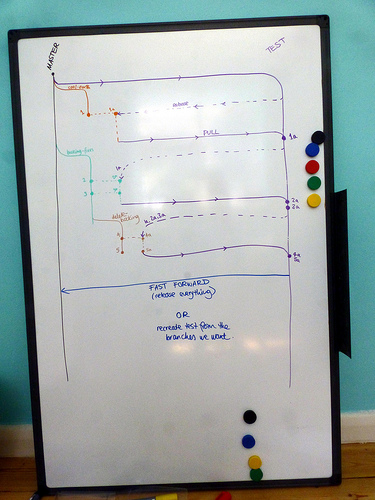 MASTER
TEST
1
1a
rebase
PULL
1a
1a
2
2a
3
3a
2a
3a
1a, 2a, 3a
4
4a
5
5a
4a
5a
FAST FORWARD
(release everything)
OR
recreate test from the
branches we want.